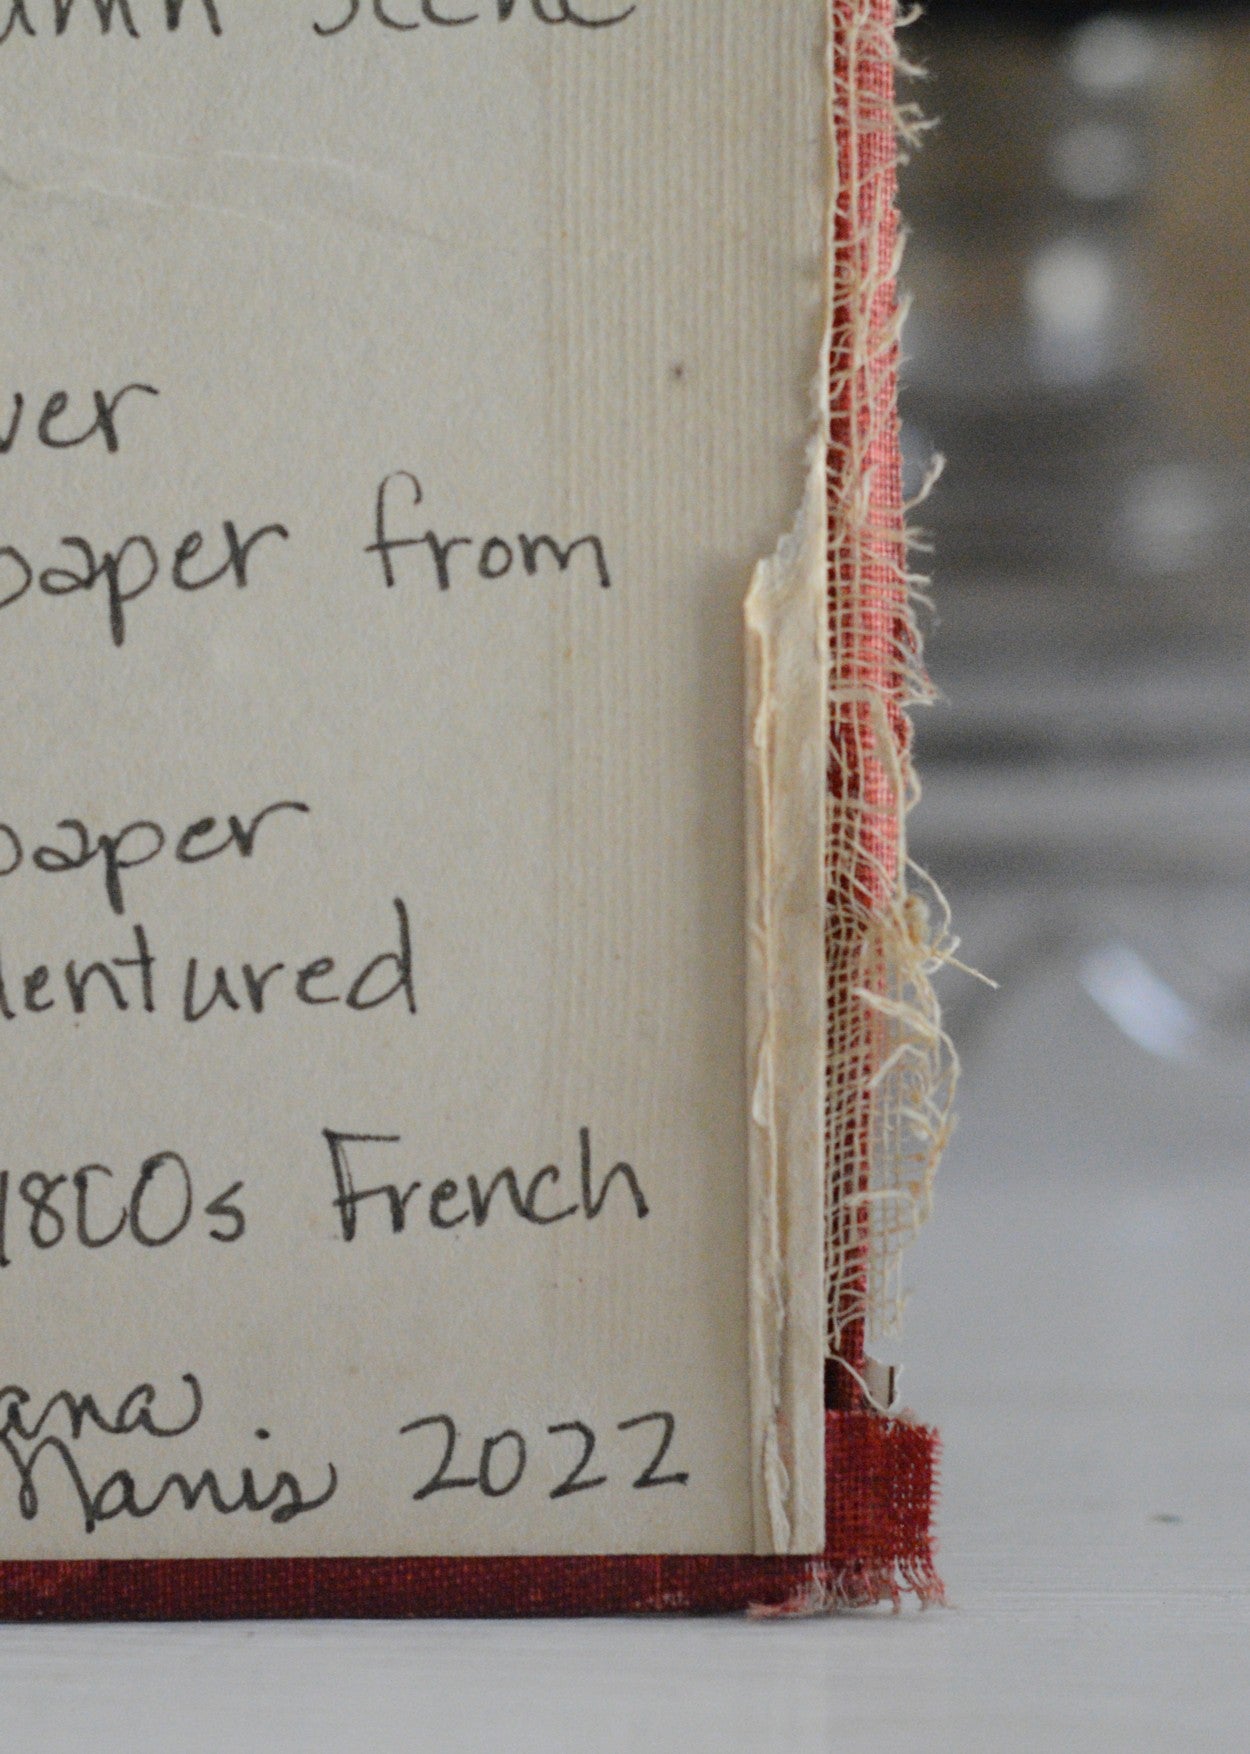 umn scene
ver
paper from
paper
dentured
1800s French
ana
Nanis 2022